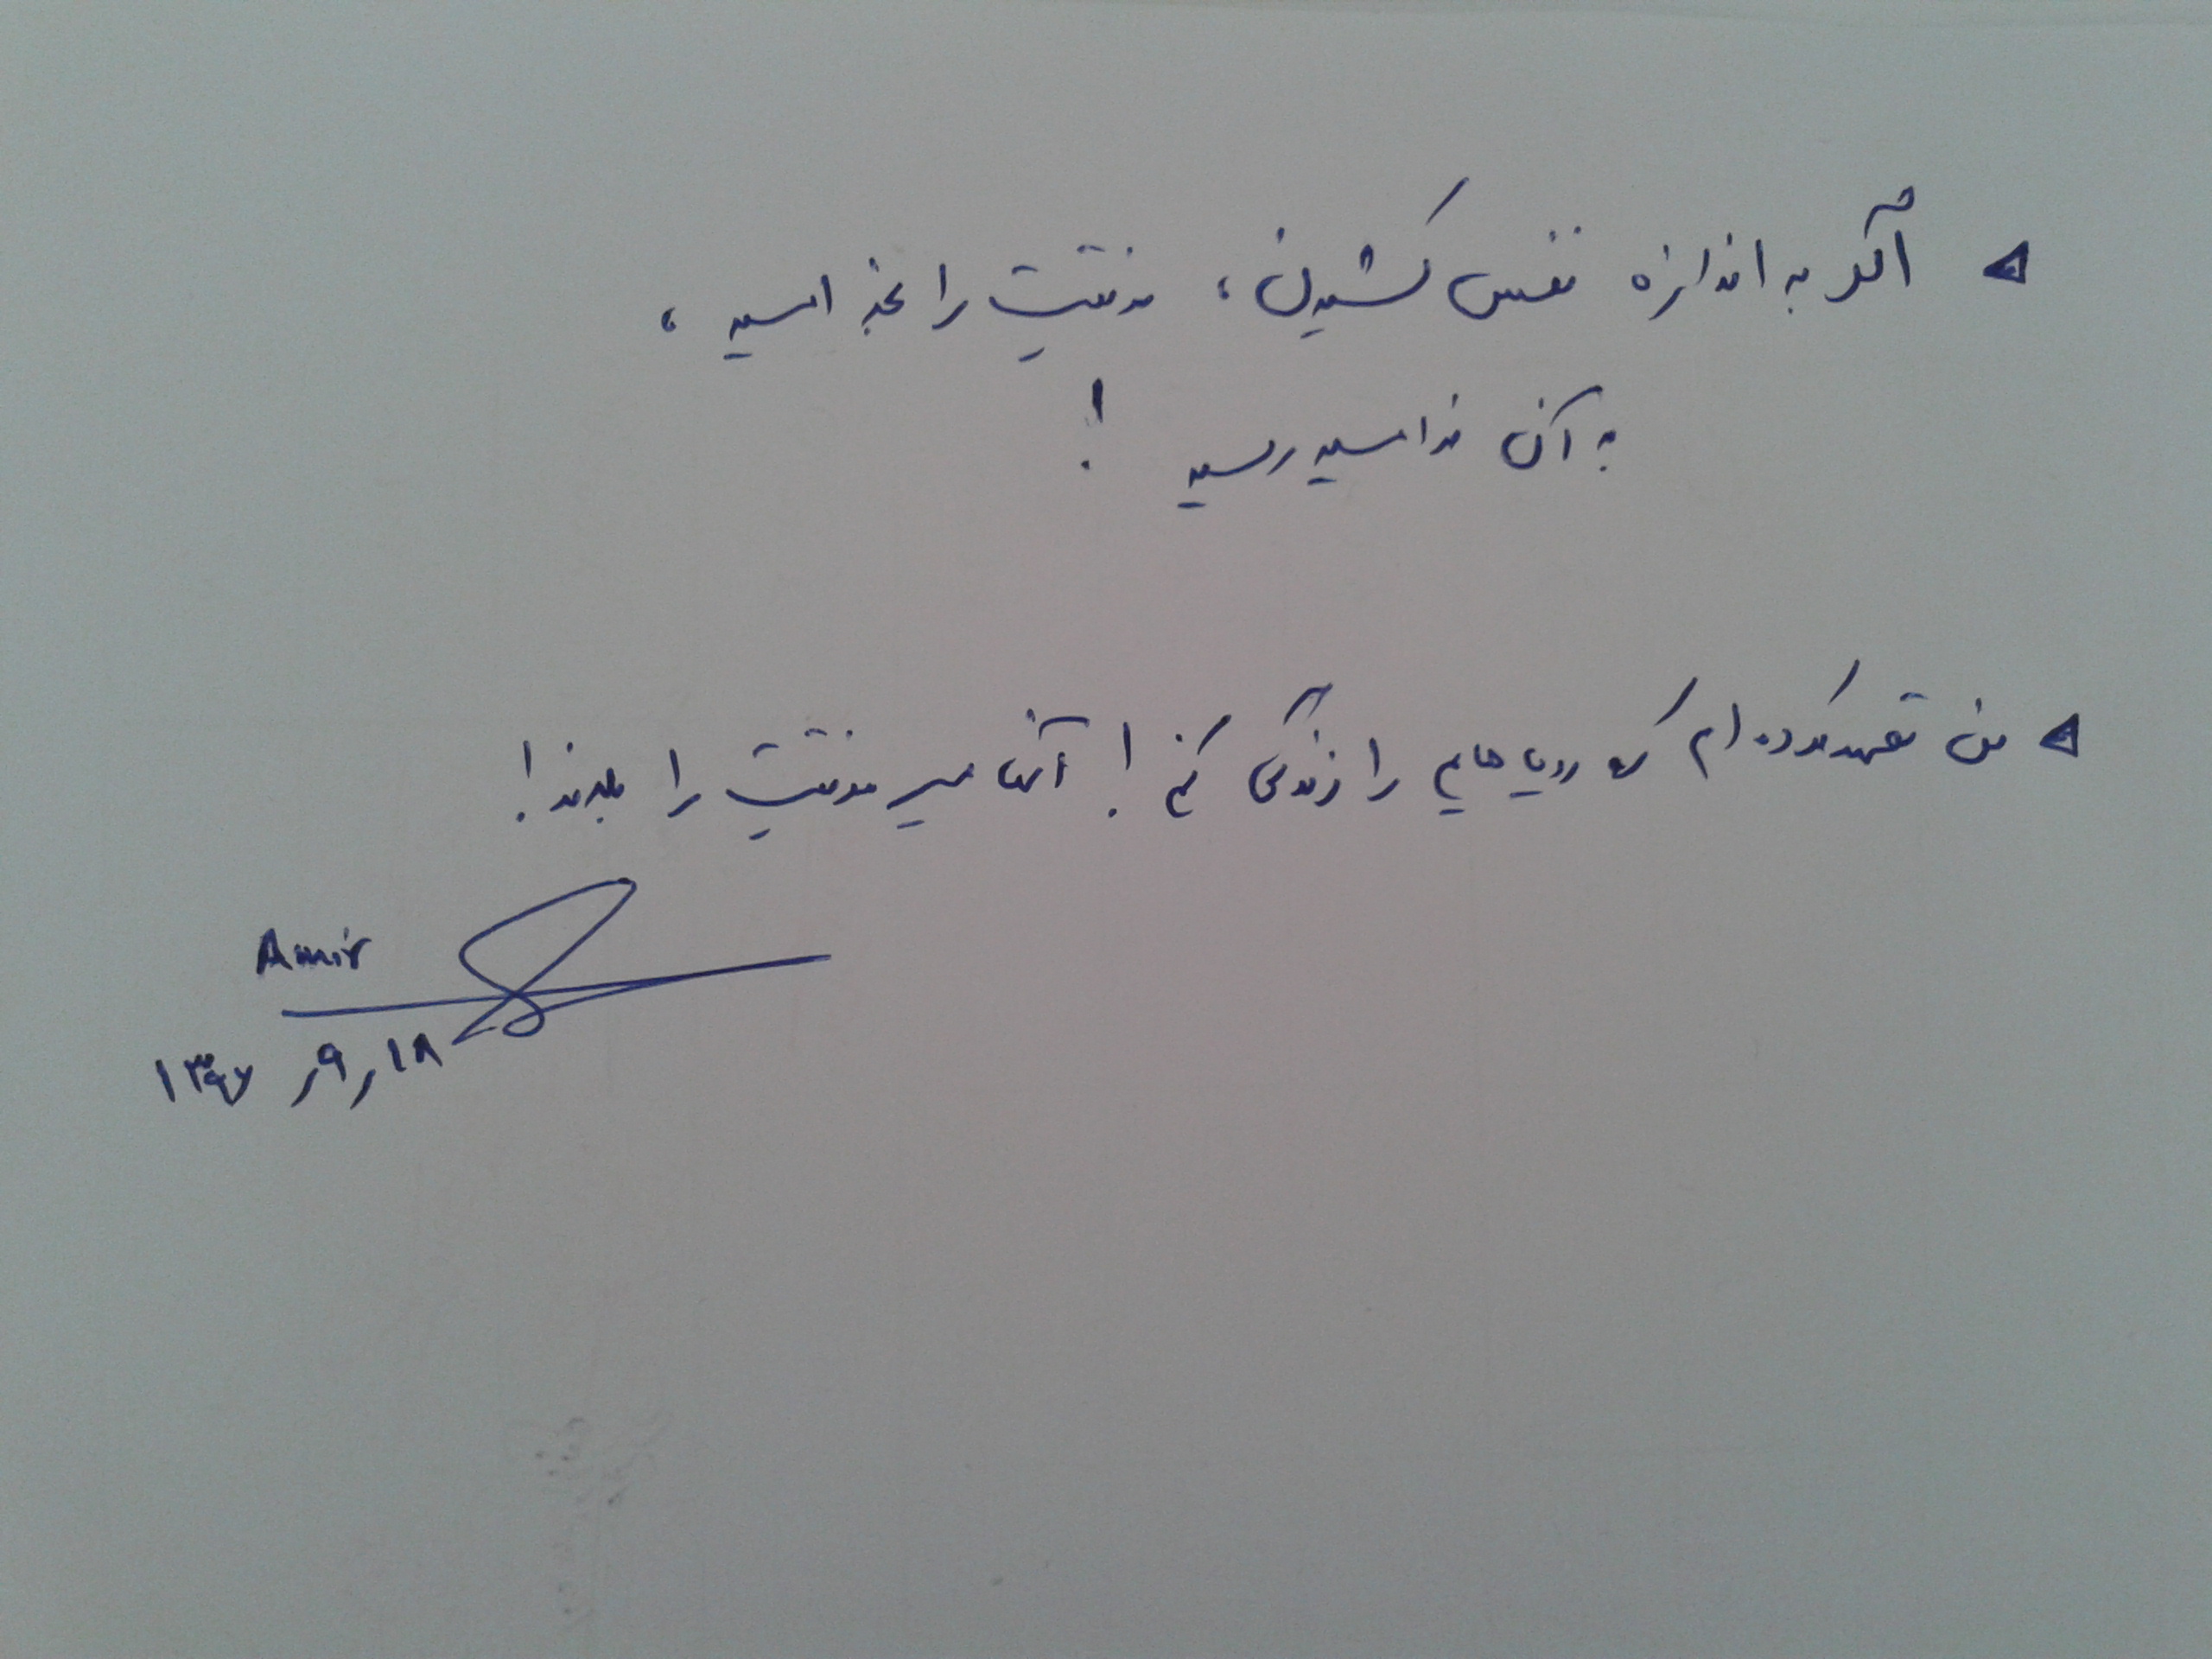 اگر به اندازه نفس کشیدن، موفقیت را بخواهید،
به آن خواهید رسید!
من تعهد کرده ام که رویاهایم را زندگی کنم! آنها مسیر موفقیت را بلدند!
Amir
۱۳۹۷٫۹٫۱۸